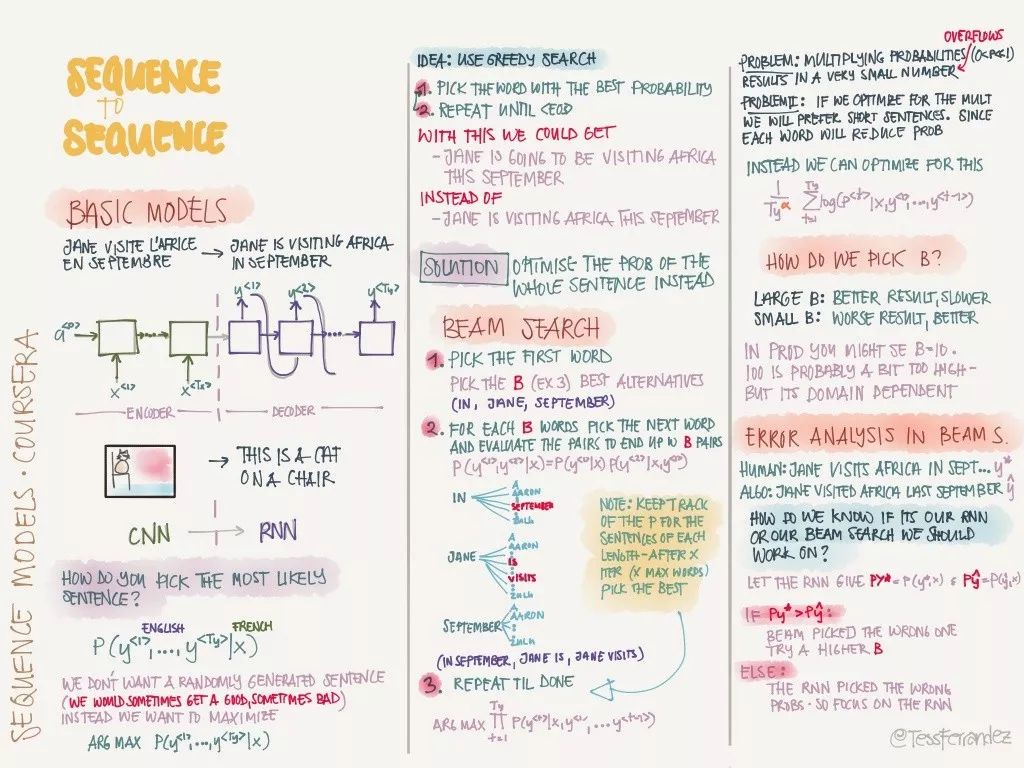 SEQUENCE
TO
SEQUENCE
BASIC MODELS
JANE VISITE L'AFRICE
EN SEPTEMBRE
→ JANE IS VISITING AFRICA
IN SEPTEMBER
y<1> y<2> y<Ty>
a<0>
x<1> x<Tx>
ENCODER DECODER
→ THIS IS A CAT
ON A CHAIR
CNN → RNN
HOW DO YOU PICK THE MOST LIKELY
SENTENCE?
ENGLISH FRENCH
P(y<1>,...,y<Ty>|x)
WE DON'T WANT A RANDOMLY GENERATED SENTENCE
(WE WOULD SOMETIMES GET A GOOD, SOMETIMES BAD)
INSTEAD WE WANT TO MAXIMIZE
ARG MAX P(y<1>,...,y<Ty>|x)
SEQUENCE MODELS · COURSERA
IDEA: USE GREEDY SEARCH
1. PICK THE WORD WITH THE BEST PROBABILITY
2. REPEAT UNTIL <EOS>
WITH THIS WE COULD GET
- JANE IS GOING TO BE VISITING AFRICA
THIS SEPTEMBER
INSTEAD OF
- JANE IS VISITING AFRICA THIS SEPTEMBER
SOLUTION OPTIMISE THE PROB OF THE
WHOLE SENTENCE INSTEAD
BEAM SEARCH
1. PICK THE FIRST WORD
PICK THE B (EX. 3) BEST ALTERNATIVES
(IN, JANE, SEPTEMBER)
2. FOR EACH B WORDS PICK THE NEXT WORD
AND EVALUATE THE PAIRS TO END UP W B PAIRS
P(y<1>,y<2>|x)=P(y<1>|x) P(y<2>|x,y<1>)
IN
A
AARON
SEPTEMBER
ZULU
JANE
A
AARON
IS
VISITS
ZULU
SEPTEMBER
A
AARON
ZULU
(IN SEPTEMBER, JANE IS, JANE VISITS)
NOTE: KEEP TRACK
OF THE P FOR THE
SENTENCES OF EACH
LENGTH - AFTER X
ITER (X MAX WORDS)
PICK THE BEST
3. REPEAT TIL DONE
ARG MAX Ty ∏ t=1 P(y<t>|x,y<1>,...y<t-1>)
OVERFLOWS
PROBLEM: MULTIPLYING PROBABILITIES (0<P<<1)
RESULTS IN A VERY SMALL NUMBER
PROBLEM II: IF WE OPTIMIZE FOR THE MULT
WE WILL PREFER SHORT SENTENCES. SINCE
EACH WORD WILL REDUCE PROB
INSTEAD WE CAN OPTIMIZE FOR THIS
1/Ty^α Ty ∑ t=1 log(P<t>|x,y<1>,...,y<t-1>)
HOW DO WE PICK B?
LARGE B: BETTER RESULT, SLOWER
SMALL B: WORSE RESULT, BETTER
IN PROD YOU MIGHT SE B=10.
100 IS PROBABLY A BIT TOO HIGH -
BUT ITS DOMAIN DEPENDENT
ERROR ANALYSIS IN BEAM S.
HUMAN: JANE VISITS AFRICA IN SEPT... y*
ALGO: JANE VISITED AFRICA LAST SEPTEMBER ŷ
HOW DO WE KNOW IF ITS OUR RNN
OR OUR BEAM SEARCH WE SHOULD
WORK ON?
LET THE RNN GIVE Py*=P(y*,x) & Pŷ=P(ŷ,x)
IF Py* > Pŷ:
BEAM PICKED THE WRONG ONE
TRY A HIGHER B
ELSE:
THE RNN PICKED THE WRONG
PROBS - SO FOCUS ON THE RNN
@TessFerrandez